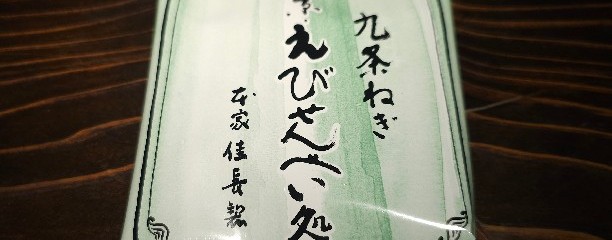 九条ねぎ
えびせんべい処
本家佳長